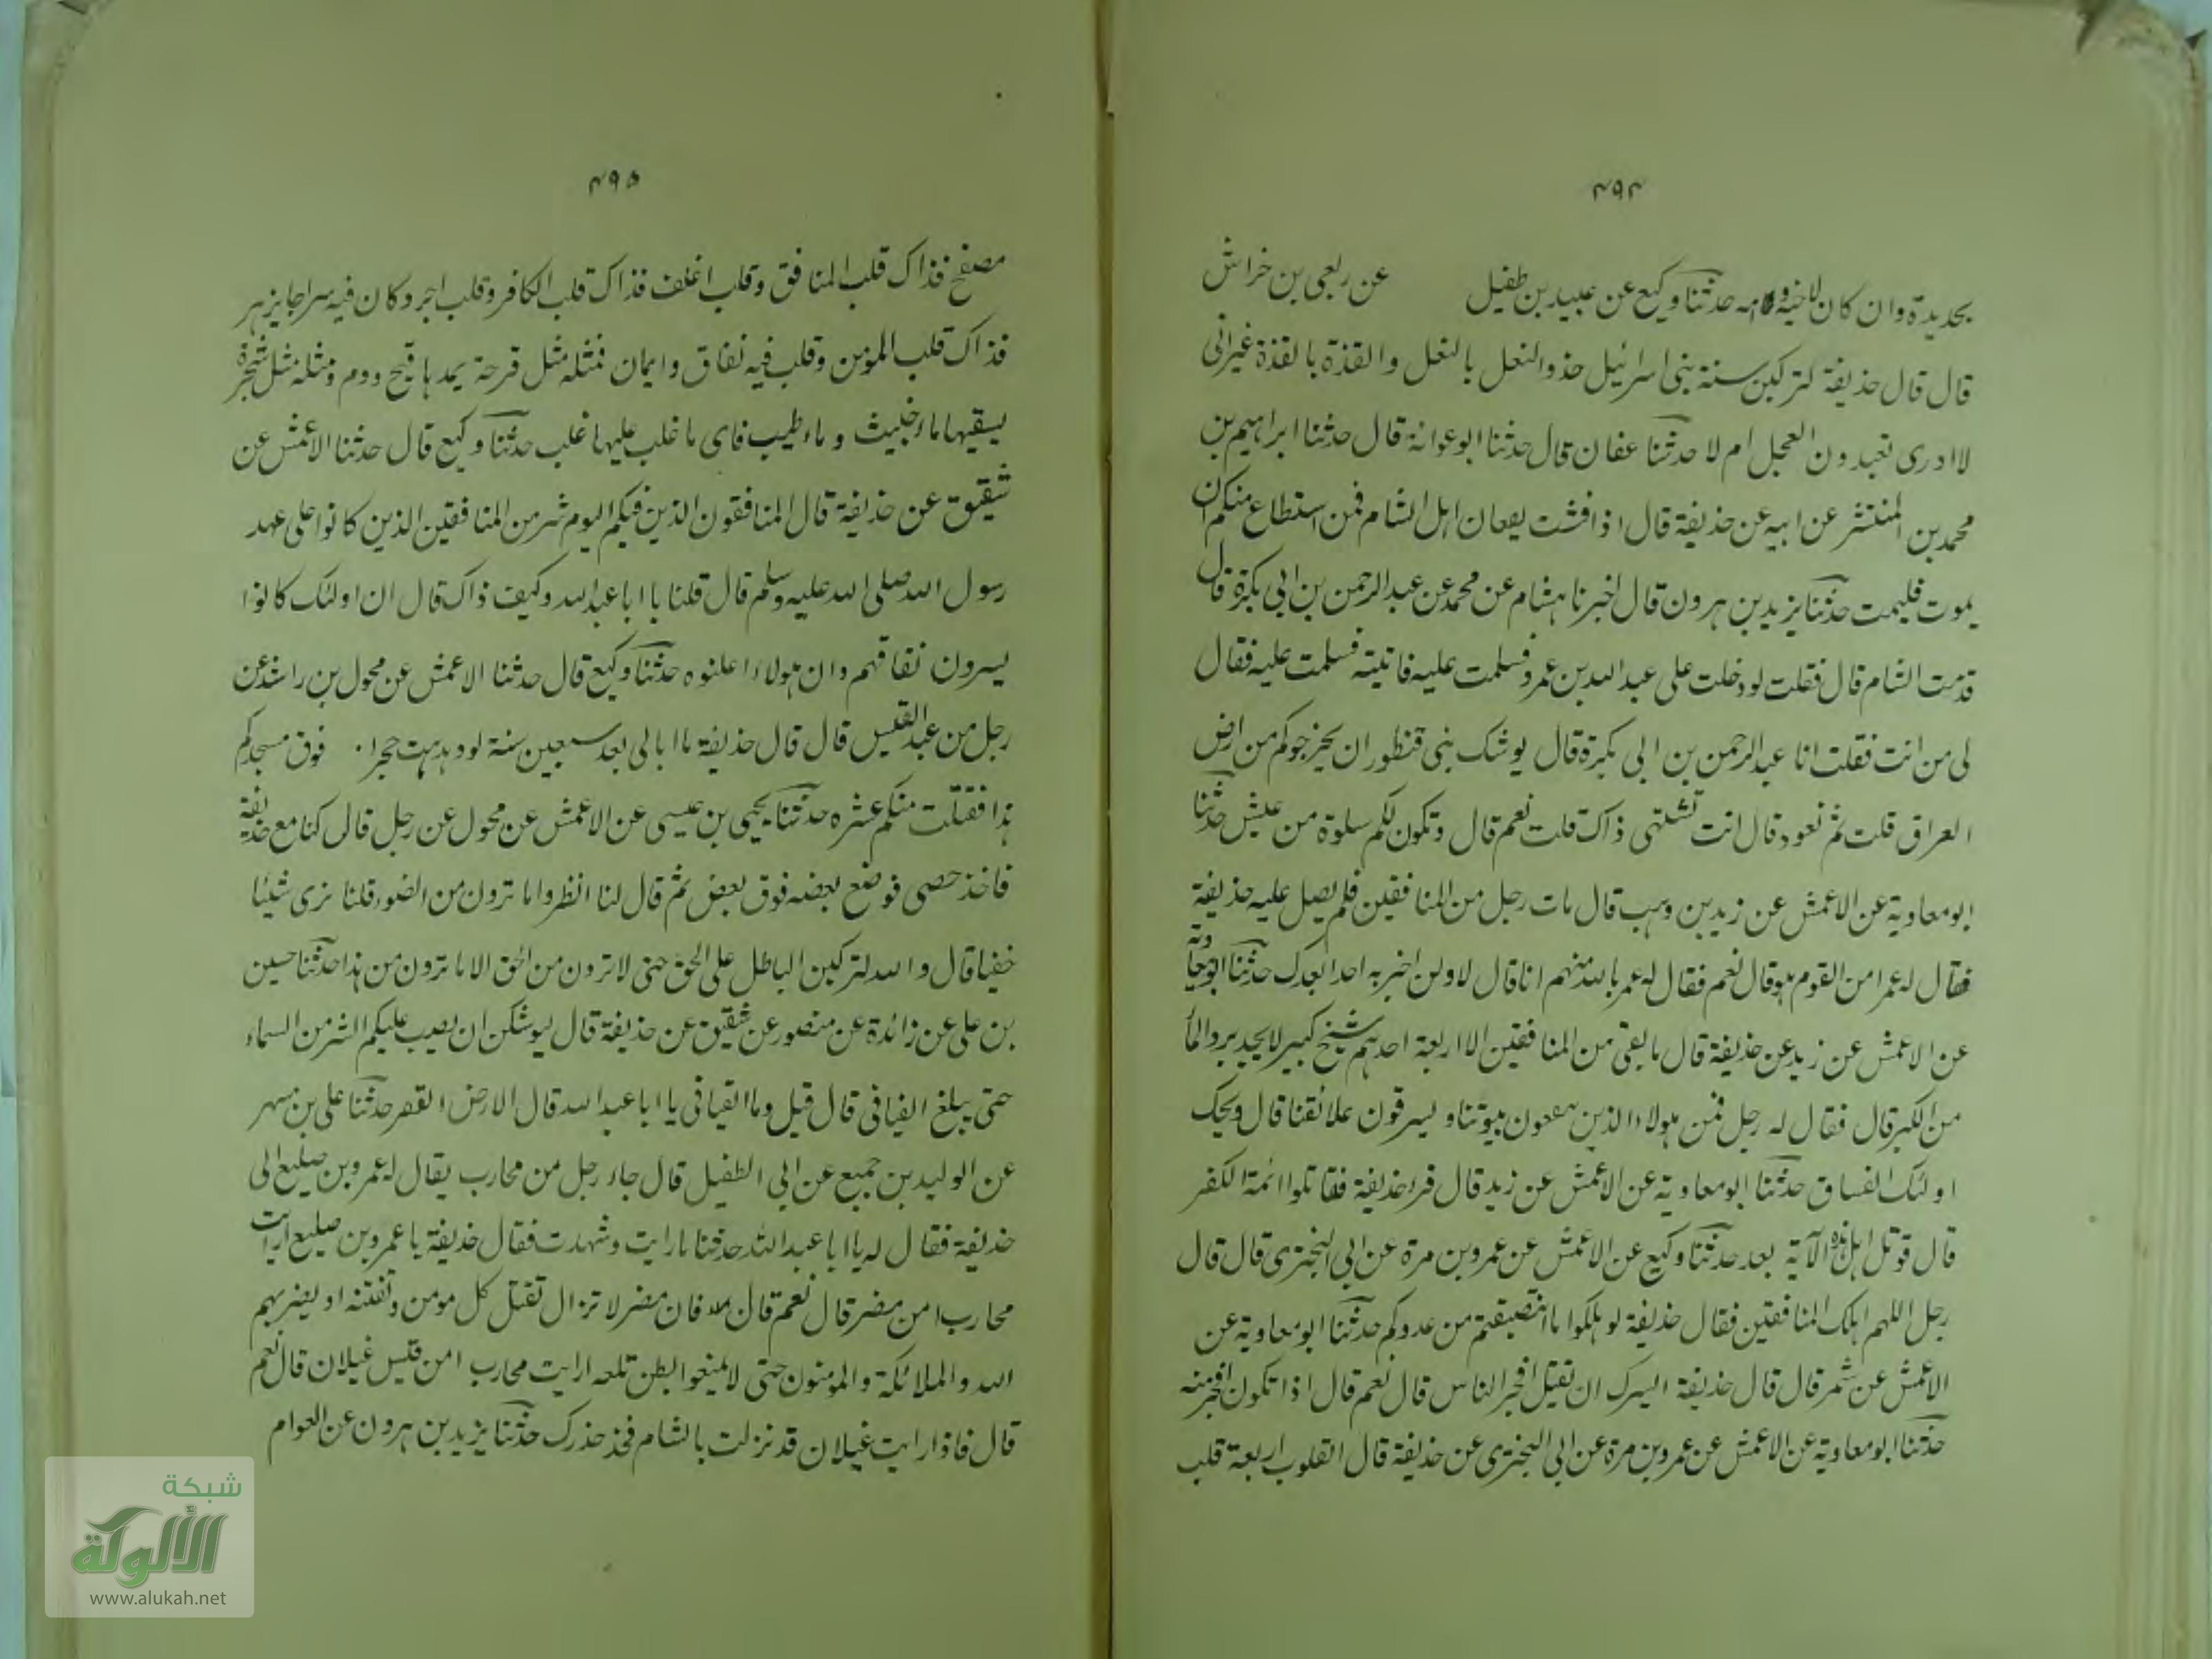 ٤٩٤
بحديدة وان كان لاخيه وامه حدثنا وكيع عن عبيد بن طفيل عن ربعي بن خراش
قال قال حذيفة لتركبن سنة بنى اسرائيل حذو النعل بالنعل والقذة بالقذة غير انى
لا ادرى تعبدون العجل ام لا حدثنا عفان قال حدثنا ابو عوانة قال حدثنا ابراهيم بن
محمد بن المنتشر عن ابيه عن حذيفة قال اذا فشت بقعان اهل الشام فمن استطاع منكم ان
يموت فليمت حدثنا يزيد بن هرون قال اخبرنا هشام عن محمد عن عبد الرحمن بن ابي بكرة قال
قدمت الشام قال فقلت لو دخلت على عبد الله بن عمرو فسلمت عليه فاتيته فسلمت عليه فقال
لى من انت فقلت انا عبد الرحمن بن ابي بكرة قال يوشك بنى قنطور ان يخرجوكم من ارض
العراق قلت ثم نعود قال انت تشتهى ذاك قلت نعم قال وتكون لكم سلوة من عيش حدثنا
ابو معاوية عن الاعمش عن زيد بن وهب قال مات رجل من المنافقين فلم يصل عليه حذيفة
فقال له عمر امن القوم هو قال نعم فقال له عمر بالله منهم انا قال لا ولن اخبر به احدا بعدك حدثنا ابو معاوية
عن الاعمش عن زيد عن حذيفة قال ما بقى من المنافقين الا اربعة احدهم شيخ كبير لا يجد برد الماء
من الكبر قال فقال له رجل فمن هولاء الذين بيوتنا ويسرقون علائقنا قال ويحك
اولئك الفساق حدثنا ابو معاوية عن الاعمش عن زيد قال قرء حذيفة فقاتلوا ائمة الكفر
قال قوتل اهل هذه الآية بعد حدثنا وكيع عن الاعمش عن عمرو بن مرة عن ابي البخترى قال قال
رجل اللهم اهلك المنافقين فقال حذيفة لو هلكوا ما انتصفتم من عدوكم حدثنا ابو معاوية عن
الاعمش عن شمر قال قال حذيفة ايسرك ان تقتل افجر الناس قال نعم قال اذا تكون افجر منه
حدثنا ابو معاوية عن الاعمش عن عمرو بن مرة عن ابي البخترى عن حذيفة قال القلوب اربعة قلب
٤٩٥
مصفح فذاك قلب المنافق وقلب اغلف فذاك قلب الكافر وقلب اجرد كان فيه سراجا يزهر
فذاك قلب المؤمن وقلب فيه نفاق وايمان فمثله مثل قرحة يمدها قيح ودم ومثله مثل شجرة
يسقيها ماء خبيث وماء طيب فاى ما غلب عليها غلب حدثنا وكيع قال حدثنا الاعمش عن
شقيق عن حذيفة قال المنافقون الذين فيكم اليوم شر من المنافقين الذين كانوا على عهد
رسول الله صلى الله عليه وسلم قال قلنا يا ابا عبد الله وكيف ذاك قال ان اولئك كانوا
يسرون نفاقهم وان هولاء اعلنوه حدثنا وكيع قال حدثنا الاعمش عن مخول بن راشد عن
رجل من عبد القيس قال قال حذيفة ما ابالى بعد سبعين سنة لو دهدهت حجرا فوق مسجدكم
هذا فقتلت منكم عشره حدثنا يحيى بن عيسى عن الاعمش عن مخول عن رجل قال كنا مع حذيفة
فاخذ حصى فوضع بعضه فوق بعض ثم قال لنا انظروا ما ترون من الضوء قلنا نرى شيئا
خفيا قال والله لتركبن الباطل على الحق حتى لا ترون من الحق الا ما ترون من هذا حدثنا حسين
بن على عن زائدة عن منصور عن شقيق عن حذيفة قال ليوشكن ان يصب عليكم الشر من السماء
حتى يبلغ الفيافى قال قيل وما الفيافى يا ابا عبد الله قال الارض القفر حدثنا على بن مسهر
عن الوليد بن جميع عن ابي الطفيل قال جاء رجل من محارب يقال له عمرو بن صليع الى
حذيفة فقال له يا ابا عبد الله حدثنا ما رايت وشهدت فقال حذيفة يا عمرو بن صليع ارايت
محارب امن مضر قال نعم قال فان مضر لا تزال تقتل كل مومن وتفتنه او يضربهم
الله والملائكة والمومنون حتى لا يمنعوا بطن تلعه ارايت محارب امن قيس غيلان قال نعم
قال فاذا رايت غيلان قد نزلت بالشام فخذ حذرك حدثنا يزيد بن هرون عن العوام
شبكة
الألوكة
www.alukah.net